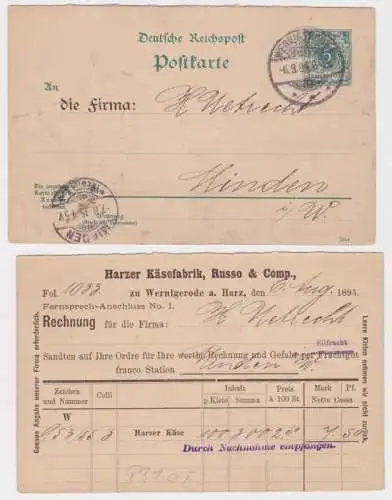 Deutsche Reichspost
Postkarte
An
die Firma: H Uetrecht
Minden
i/W.
MINDEN
Harzer Käsefabrik, Russo & Comp.,
Fol. 1083 zu Wernigerode a. Harz, den 6 Aug. 1895.
Fernsprech-Anschluss No. 1.
Rechnung für die Firma: H Uetrecht
Eilfracht
Sandten auf Ihre Ordre für Ihre werthe Rechnung und Gefahr per Frachtgut
franco Station Minden i/W.
Zeichen und Nummer
Colli
Inhalt
p. Kiste Summa
Preis
à 100 St
Mark Pf.
Netto Comst
W
953/55 3 Harzer Käse 100 300 2.50 7 50
Durch Nachnahme empfangen.
Genaue Angabe unserer Firma erforderlich.
Leere Kisten nehmen wir nicht zurück.